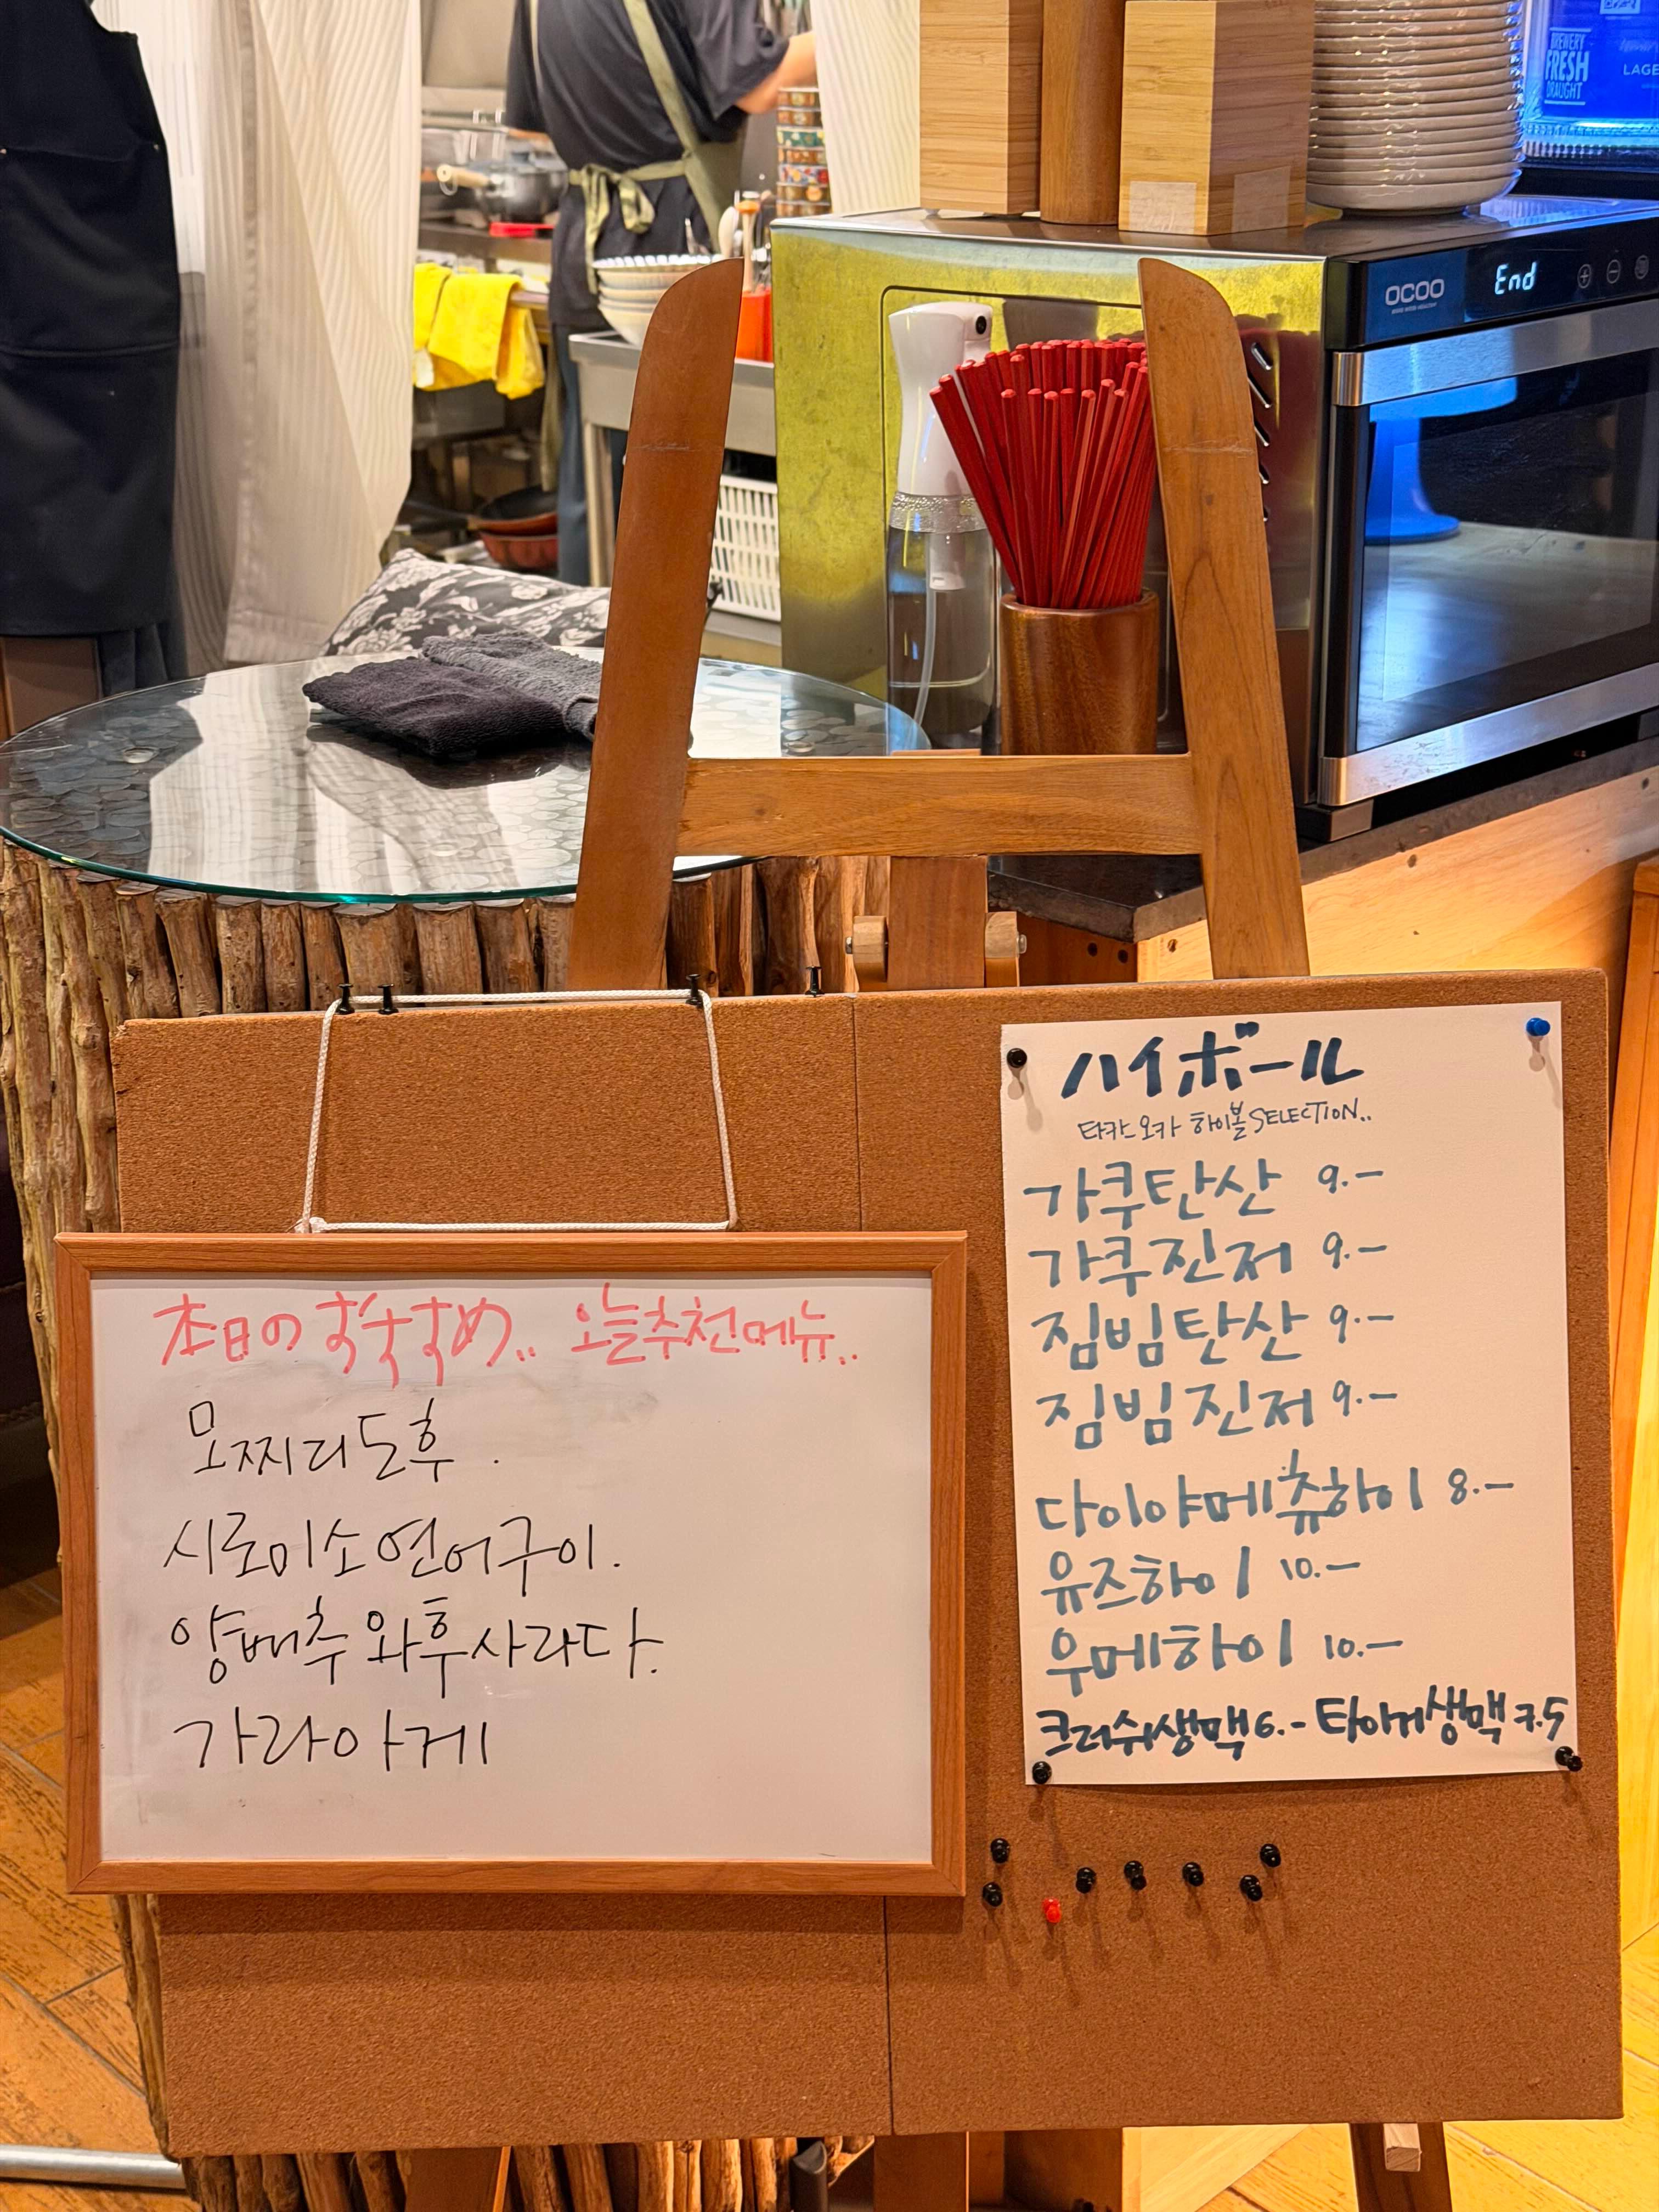 BREWERY
FRESH
DRAUGHT
LAGE
OCOO
End
ハイボール
타카오카 하이볼 SELECTION..
가쿠탄산 9.-
가쿠진저 9.-
짐빔탄산 9.-
짐빔진저 9.-
다이야메츄하이 8.-
유즈하이 10.-
우메하이 10.-
크러쉬생맥 6.- 타이거생맥 7.5
本日のおすすめ.. 오늘추천메뉴..
모찌리도후.
시로미소연어구이.
양배추와후사라다.
가라아게